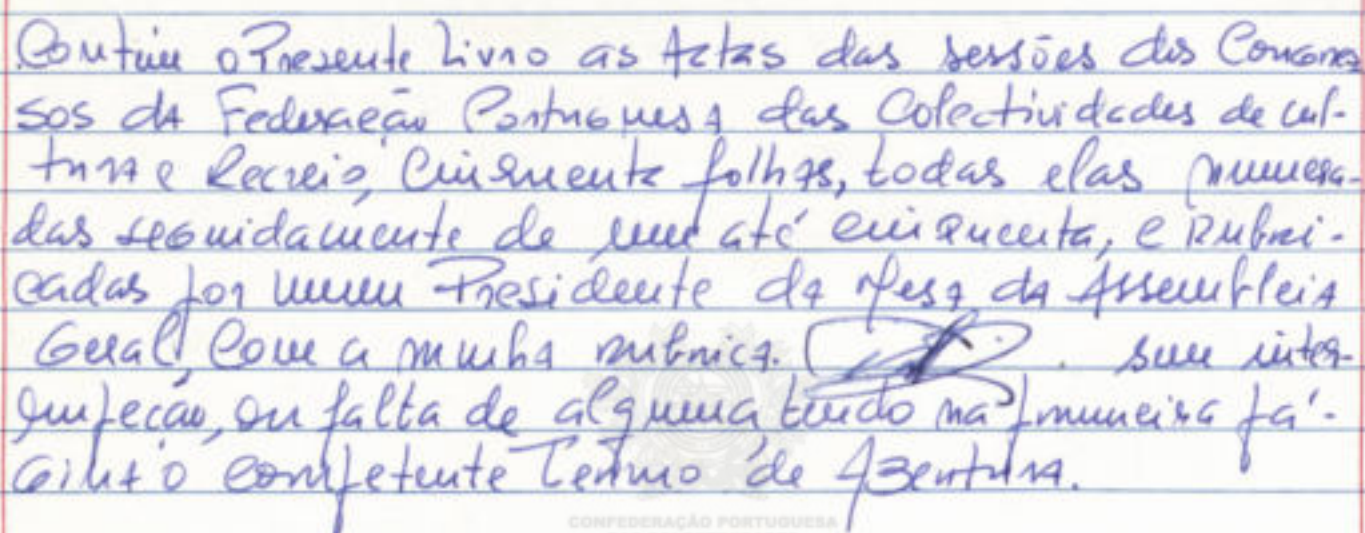 Contem o Presente Livro as Actas das sessões dos Congres
sos da Federação Portuguesa das Colectividades de cul-
tura e Recreio, Cinquenta folhas, todas elas numera-
das seguidamente de um até cinquenta, e Rubri-
cadas por mim Presidente da Mesa da Assembleia
Geral, com a minha rubrica. . sem inter-
rupção, ou falta de alguma tendo na primeira pá-
gina o competente Termo de Abertura.
CONFEDERAÇÃO PORTUGUESA